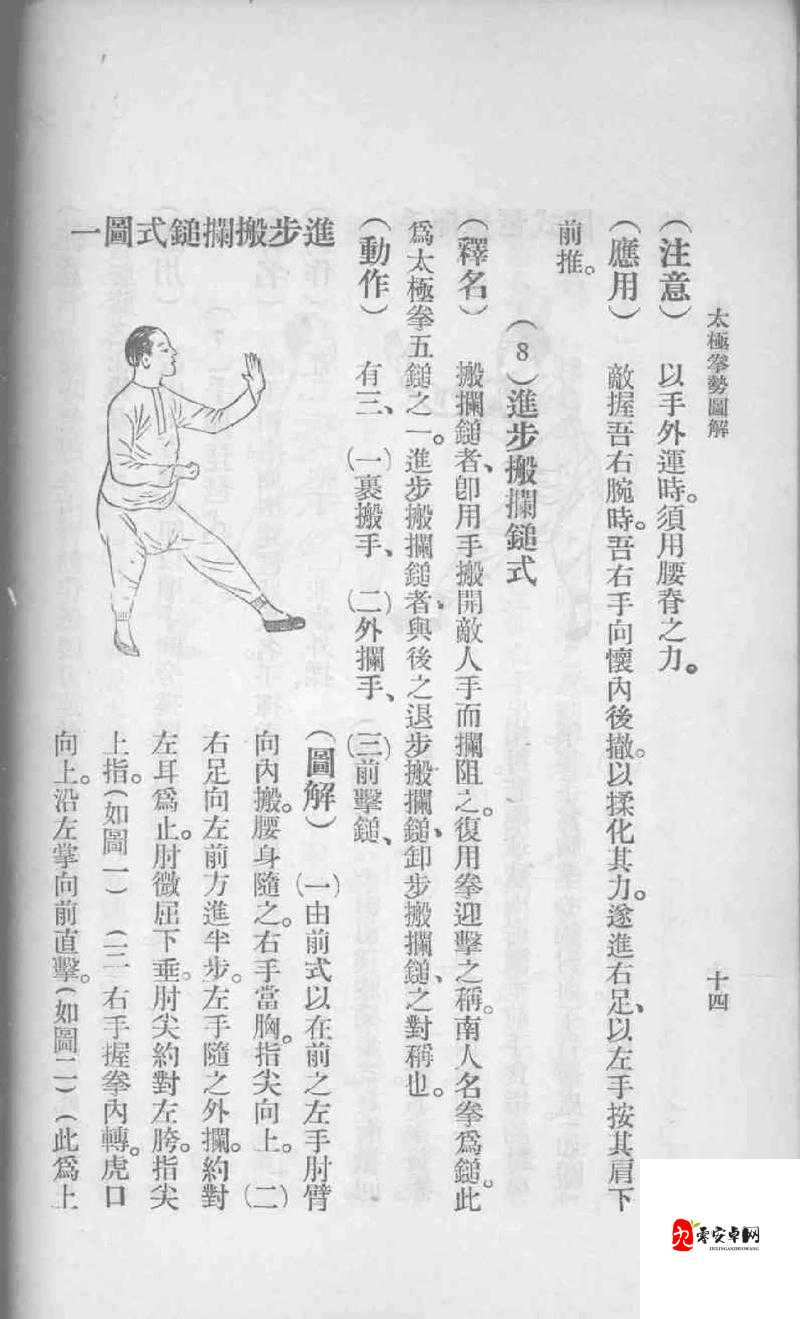 太極拳勢圖解
十四
（注意）以手外運時。須用腰脊之力。
（應用）敵握吾右腕時。吾右手向懷內後撤。以揉化其力。遂進右足、以左手按其肩下
前推。
（8）進步搬攔鎚式
（釋名）搬攔鎚者、卽用手搬開敵人手而攔阻之。復用拳迎擊之稱。南人名拳爲鎚。此
爲太極拳五鎚之一。進步搬攔鎚者、與後之退步搬攔鎚、卸步搬攔鎚、之對稱也。
（動作）有三、(一)裹搬手、(二)外攔手、(三)前擊鎚、
進步搬攔鎚式圖一
（圖解）(一)由前式以在前之左手肘臂
向內搬。腰身隨之。右手當胸。指尖向上。(二)
右足向左前方進半步。左手隨之外攔。約對
左耳爲止。肘微屈下垂。肘尖約對左胯。指尖
上指。(如圖一)(三)右手握拳內轉。虎口
向上。沿左掌向前直擊。(如圖二)(此爲上
零安卓网